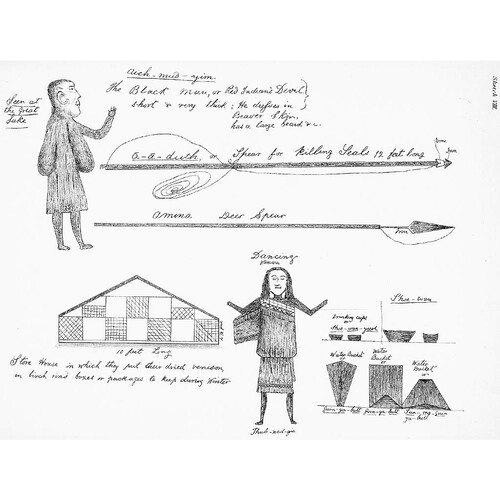 Sketch VIII
Aich-mud-yim.
The Black Man, or Red Indian's Devil
short & very thick; He dresses in
Beaver Skin,
has a large beard &c.
Seen at
the Great
Lake
a-a-duth, or Spear for Killing Seals 12 feet long
Bone
Iron
Amina Deer Spear
Iron
Dancing
Woman
Thub-wed-gie
10 feet Long
Store House in which they put their dried venison
in birch rind boxes or packages to keep during Winter
Drinking cups
Shoe-wan-yeesh
Shoe-wan
Water Bucket
or
Water
Bucket
or
Water
Bucket
or
guin-ya-butt